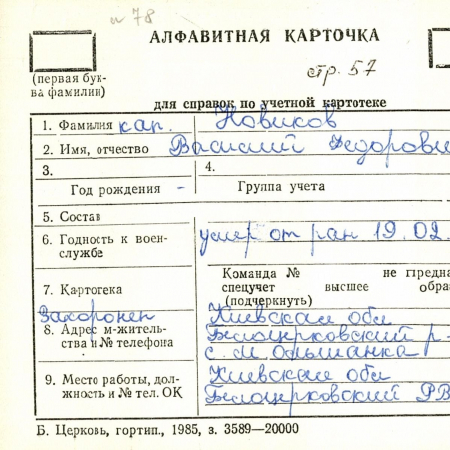 № 78
АЛФАВИТНАЯ КАРТОЧКА
стр. 57
(первая бук-
ва фамилии)
для справок по учетной картотеке
1. Фамилия кап. Новиков
2. Имя, отчество Василий Федорови
3.
4.
Год рождения –
Группа учета
5. Состав
6. Годность к воен-
службе
умер от ран 19.02.
Команда № не предна
спецучет высшее обра
(подчеркнуть)
7. Картотека
Захоронен
Киевская обл
8. Адрес м-житель-
ства и № телефона
Белоцерковский р.
с. М Ольшанка
9. Место работы, дол-
жность и № тел. ОК
Киевская обл
Белоцерковский РВ
Б. Церковь, гортип., 1985, з. 3589—20000